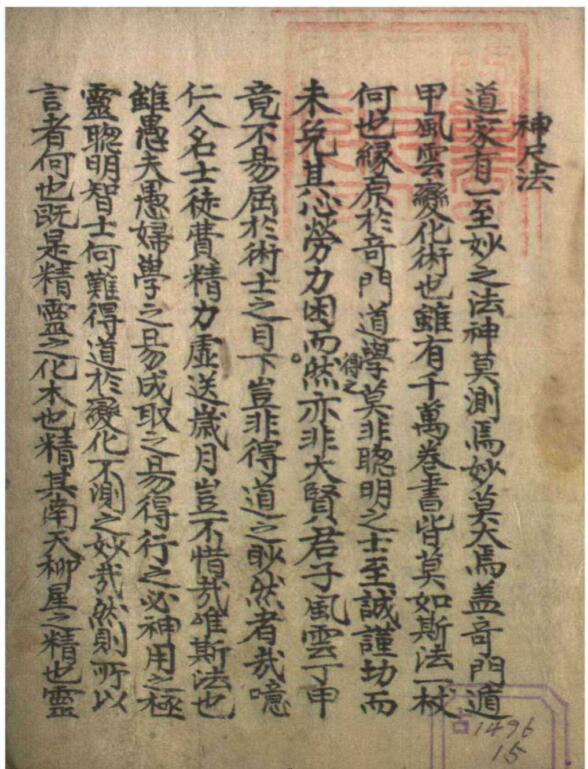 神尺法
道家有一至妙之法神莫測焉妙莫大焉盖奇門遁
甲風雲變化術也雖有千萬卷書皆莫如斯法一杖
何也緣原於奇門道學莫非聰明之士至誠謹功而
未免其心勞力困而然得之亦非大賢君子風雲丁甲
竟不易屈於術士之目下豈非得道之眇然者哉噫
仁人名士徒費精力虛送歲月豈不惜哉唯斯法也
雖愚夫愚婦學之易成取之易得行之必神用之極
靈聰明智士何難得道於變化不測之妙哉然則所以
言者何也旣是精靈之化木也精其南天柳星之精也靈
古1496
15